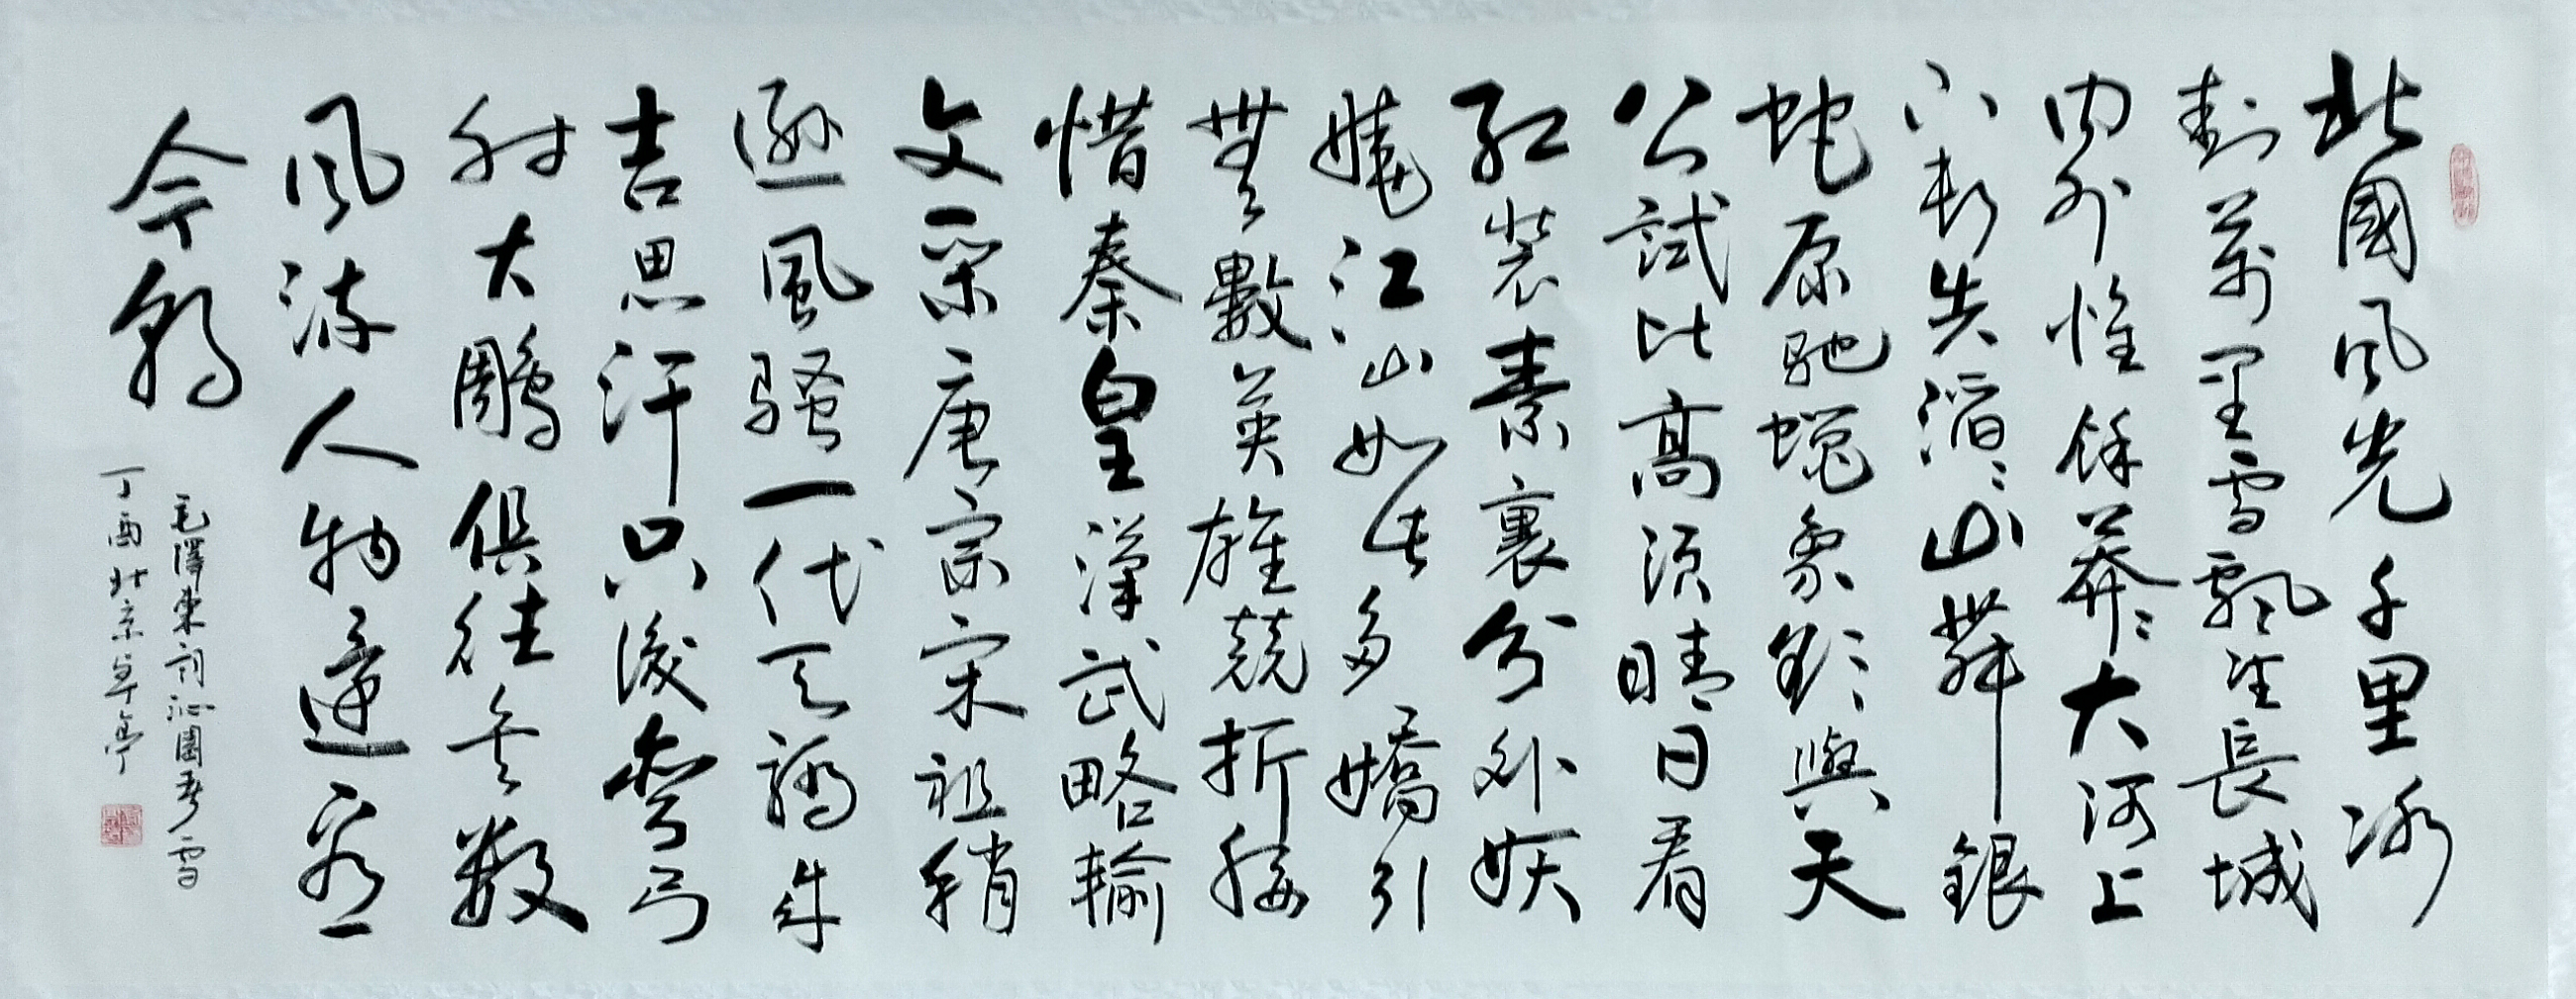 北國风光千里冰
封萬里雪飄望長城
内外惟餘莽々大河上
下頓失滔々山舞銀
蛇原馳蠟象欲與天
公試比高須晴日看
紅裝素裹分外妖
嬈江山如此多嬌引
無數英雄競折腰
惜秦皇漢武略輸
文采唐宗宋祖稍
遜風騷一代天驕成
吉思汗只識彎弓
射大鵰俱往矣数
风流人物還看
今朝
毛澤東詞沁園春雪
丁酉北京草亭